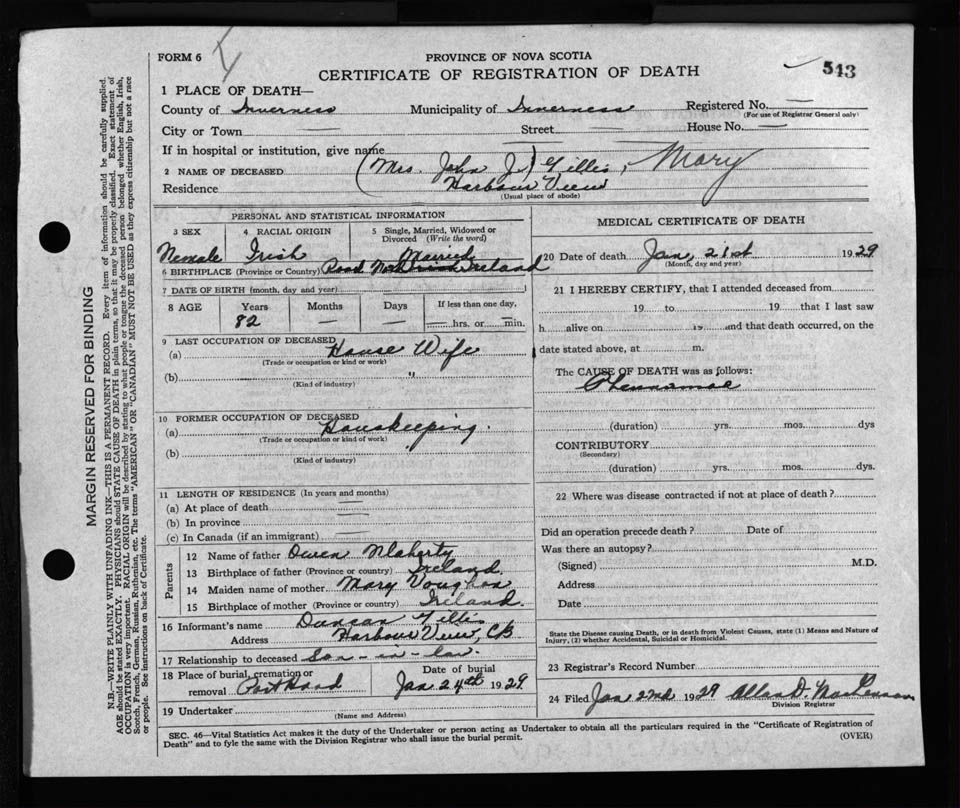 FORM 6
PROVINCE OF NOVA SCOTIA
CERTIFICATE OF REGISTRATION OF DEATH
543
1 PLACE OF DEATH—
County of Inverness Municipality of Inverness Registered No. —
(For use of Registrar General only)
City or Town — Street — House No. —
If in hospital or institution, give name
2 NAME OF DECEASED (Mrs. John J.) Gillis, Mary
Residence Harbour View
(Usual place of abode)
PERSONAL AND STATISTICAL INFORMATION
3 SEX 4 RACIAL ORIGIN 5 Single, Married, Widowed or Divorced (Write the word)
Female Irish Married
6 BIRTHPLACE (Province or Country) Ireland
7 DATE OF BIRTH (month, day and year)
8 AGE Years Months Days If less than one day,
82 — — — hrs. or — min.
9 LAST OCCUPATION OF DECEASED
(a) House Wife
(Trade or occupation or kind or work)
(b) "
(Kind of industry)
10 FORMER OCCUPATION OF DECEASED
(a) Houskeeping.
(Trade or occupation or kind of work)
(b)
(Kind of industry)
11 LENGTH OF RESIDENCE (In years and months)
(a) At place of death —
(b) In province —
(c) In Canada (if an immigrant) —
Parents
12 Name of father Owen
13 Birthplace of father (Province or country) Ireland
14 Maiden name of mother Mary
15 Birthplace of mother (Province or country) Ireland.
16 Informant's name Duncan Gillis
Address Harbour View, CB
17 Relationship to deceased Son-in-law.
18 Place of burial, cremation or removal Port Hood Date of burial Jan 24th 1929.
19 Undertaker
(Name and Address)
MEDICAL CERTIFICATE OF DEATH
20 Date of death Jan, 21st 1929
(Month, day and year)
21 I HEREBY CERTIFY, that I attended deceased from
19 to 19 that I last saw
h alive on 19 and that death occurred, on the
date stated above, at m.
The CAUSE OF DEATH was as follows:
(duration) yrs. mos. dys
CONTRIBUTORY
(Secondary)
(duration) yrs. mos. dys.
22 Where was disease contracted if not at place of death?
Did an operation precede death? Date of
Was there an autopsy?
(Signed) M.D.
Address
Date
State the Disease causing Death, or in death from Violent Causes, state (1) Means and Nature of
Injury, (2) whether Accidental, Suicidal or Homicidal.
23 Registrar's Record Number
24 Filed Jan 22nd 1929 Allan D. MacLennan
Division Registrar
SEC. 46—Vital Statistics Act makes it the duty of the Undertaker or person acting as Undertaker to obtain all the particulars required in the "Certificate of Registration of
Death" and to fyle the same with the Division Registrar who shall issue the burial permit.
(OVER)
MARGIN RESERVED FOR BINDING
N.B—WRITE PLAINLY WITH UNFADING INK—THIS IS A PERMANENT RECORD. Every item of information should be carefully supplied.
AGE should be stated EXACTLY. PHYSICIANS should STATE CAUSE OF DEATH in plain terms, so that it may be properly classified. Exact statement of
OCCUPATION is very important. RACIAL ORIGIN will be described by stating to what people or tongue the deceased person belonged whether English, Irish,
Scotch, French, German, Russian, Ruthenian, etc. The terms "AMERICAN" OR "CANADIAN" MUST NOT BE USED as they express citizenship but not a race
or people. See instructions on back of Certificate.